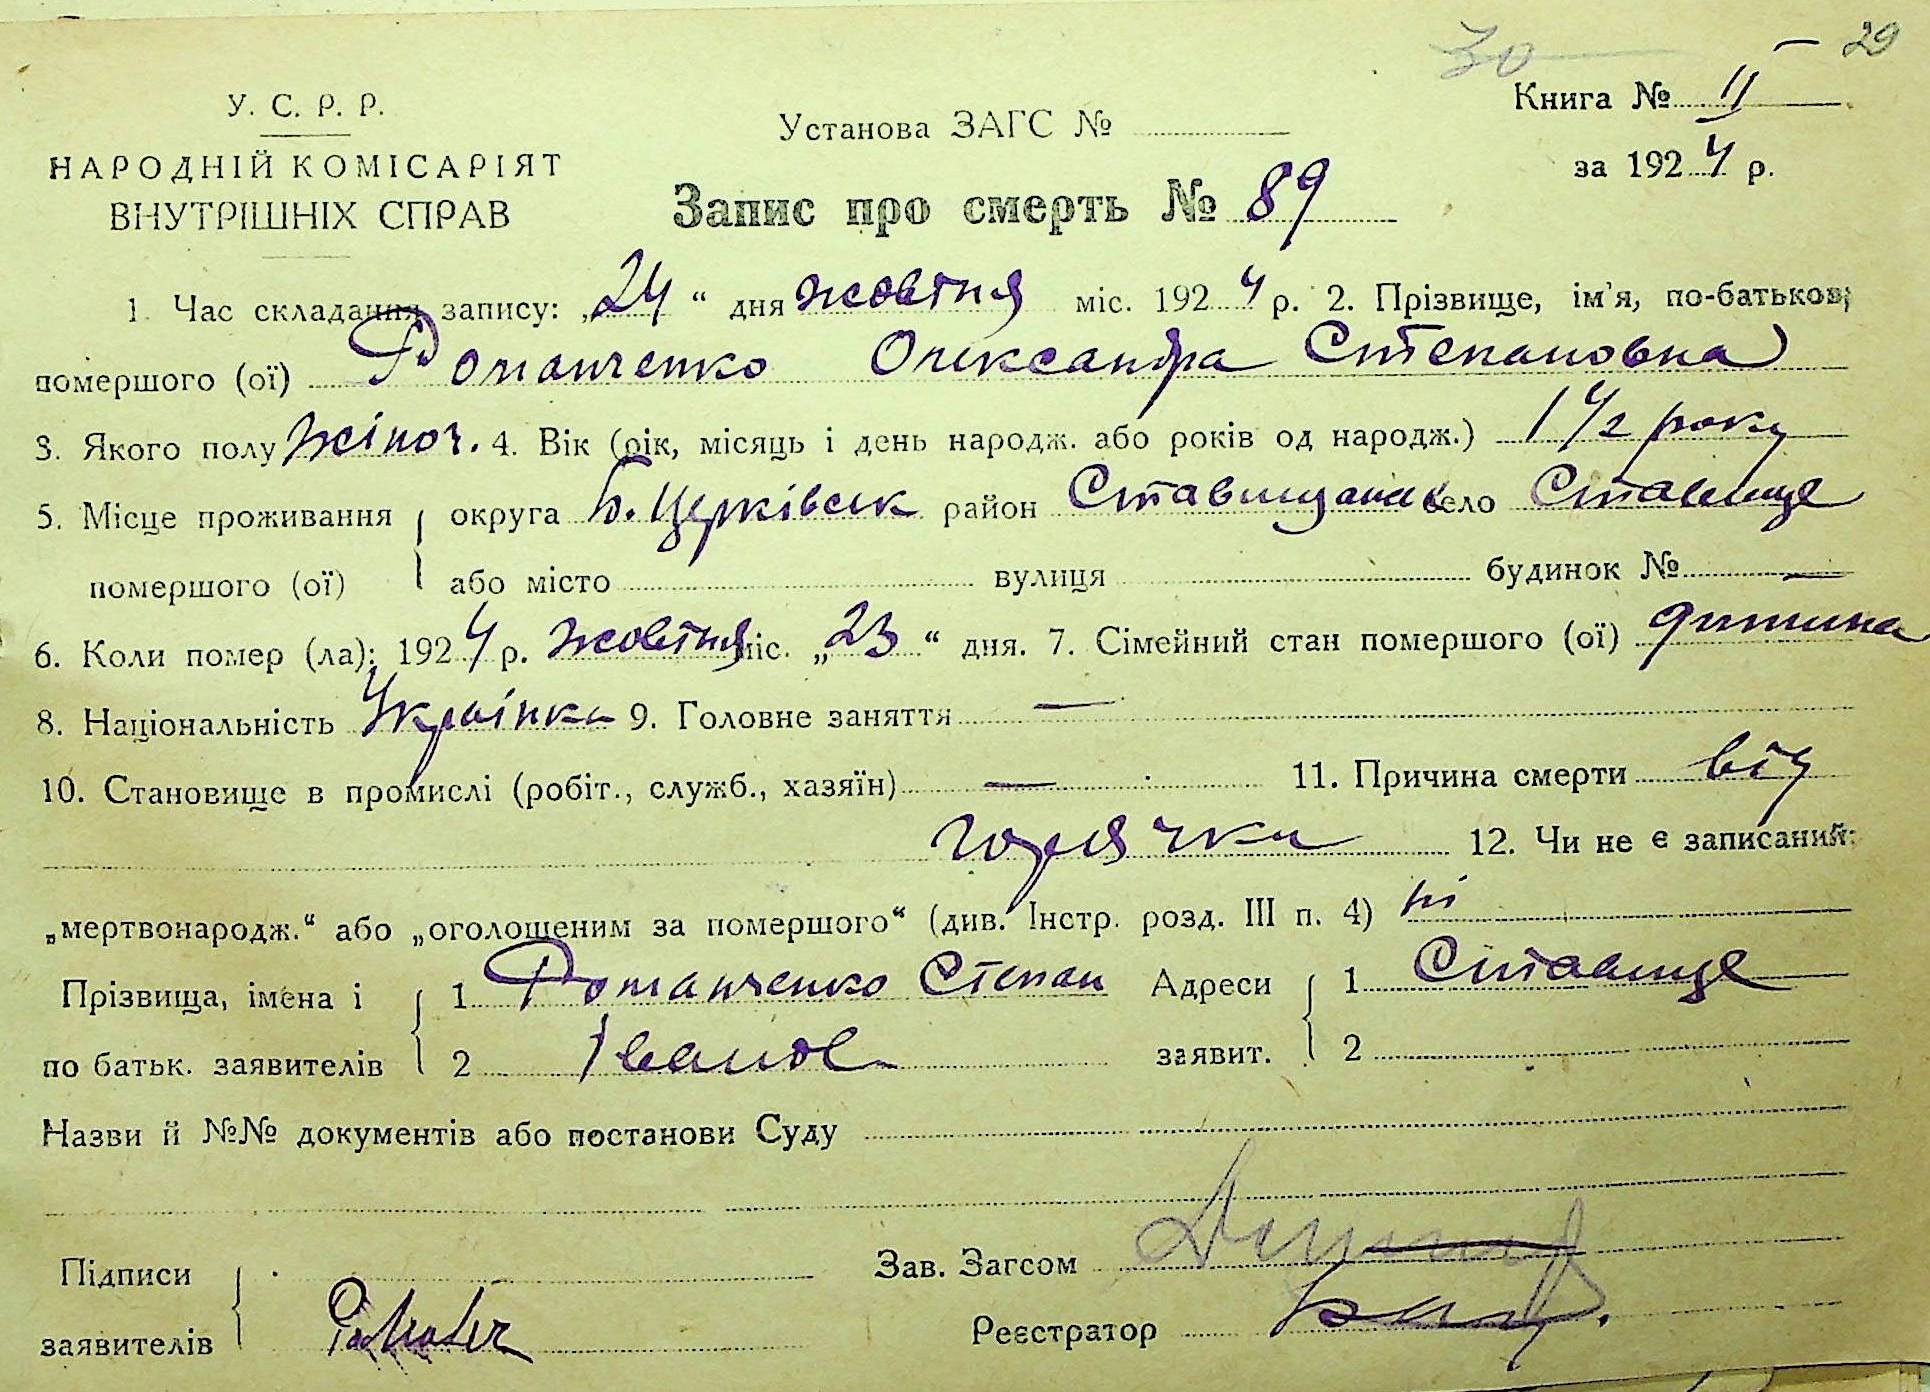 30 — 29
У. С. Р. Р.
НАРОДНІЙ КОМІСАРІЯТ
ВНУТРІШНІХ СПРАВ
Установа ЗАГС №
Запис про смерть № 89
Книга № II
за 1924 р.
1. Час складання запису: „24“ дня жовтня міс. 1924 р. 2. Прізвище, ім'я, по-батькові
помершого (ої) Романченко Олександра Степановна
3. Якого полу жіноч. 4. Вік (рік, місяць і день народж. або років од народж.) 1 1/2 року
5. Місце проживання округа Б. Церківськ район Ставищанськ село Ставище
помершого (ої) або місто вулиця будинок № —
6. Коли помер (ла): 1924 р. жовтня міс. „23“ дня. 7. Сімейний стан помершого (ої) дитина
8. Національність Українка 9. Головне заняття —
10. Становище в промислі (робіт., служб., хазяїн) — 11. Причина смерти від
горячки 12. Чи не є записаний:
„мертвонародж.“ або „оголошеним за помершого“ (див. Інстр. розд. III п. 4) ні
Прізвища, імена і 1 Романченко Степан Адреси 1 Ставище
по батьк. заявителів 2 Іванов заявит. 2
Назви й №№ документів або постанови Суду
Підписи Зав. Загсом
заявителів Реєстратор